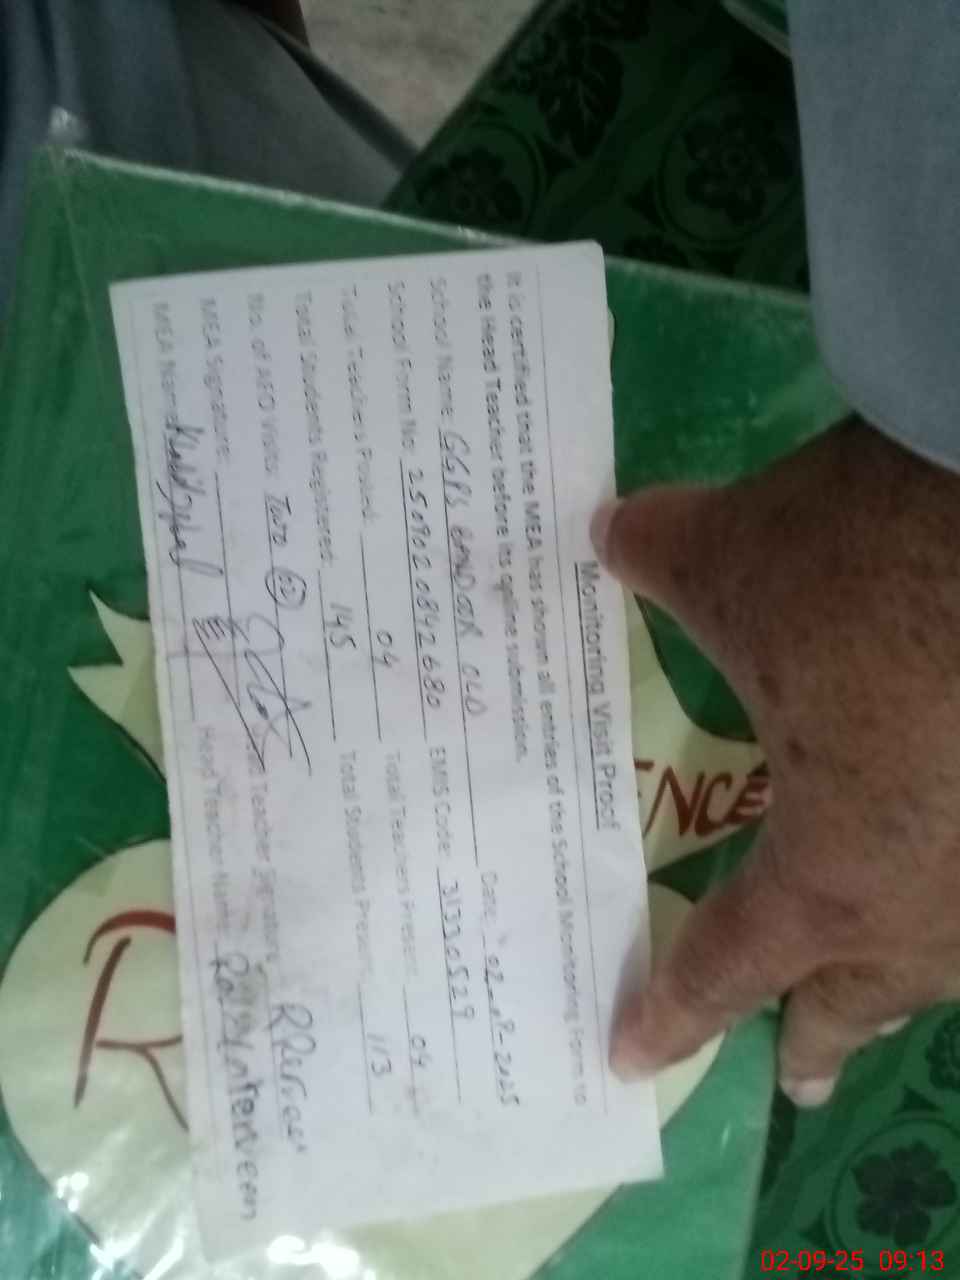 Monitoring Visit Proof
It is certified that the MEA has shown all entries of the School Monitoring Form to
the Head Teacher before its online submission.
School Name: GGPS BONDOOR OLD Date: 02-09-2025
School Form No: 2509020842680 EMIS Code: 31330529
Total Teachers Posted: 04 Total Teachers Present: 04
Total Students Registered: 145 Total Students Present: 113
No. of AEO Visits: Two 02
MEA Signature: Head Teacher Signature: RPerveen
MEA Name: Head Teacher Name: Perveen
ENCE
R
02-09-25 09:13